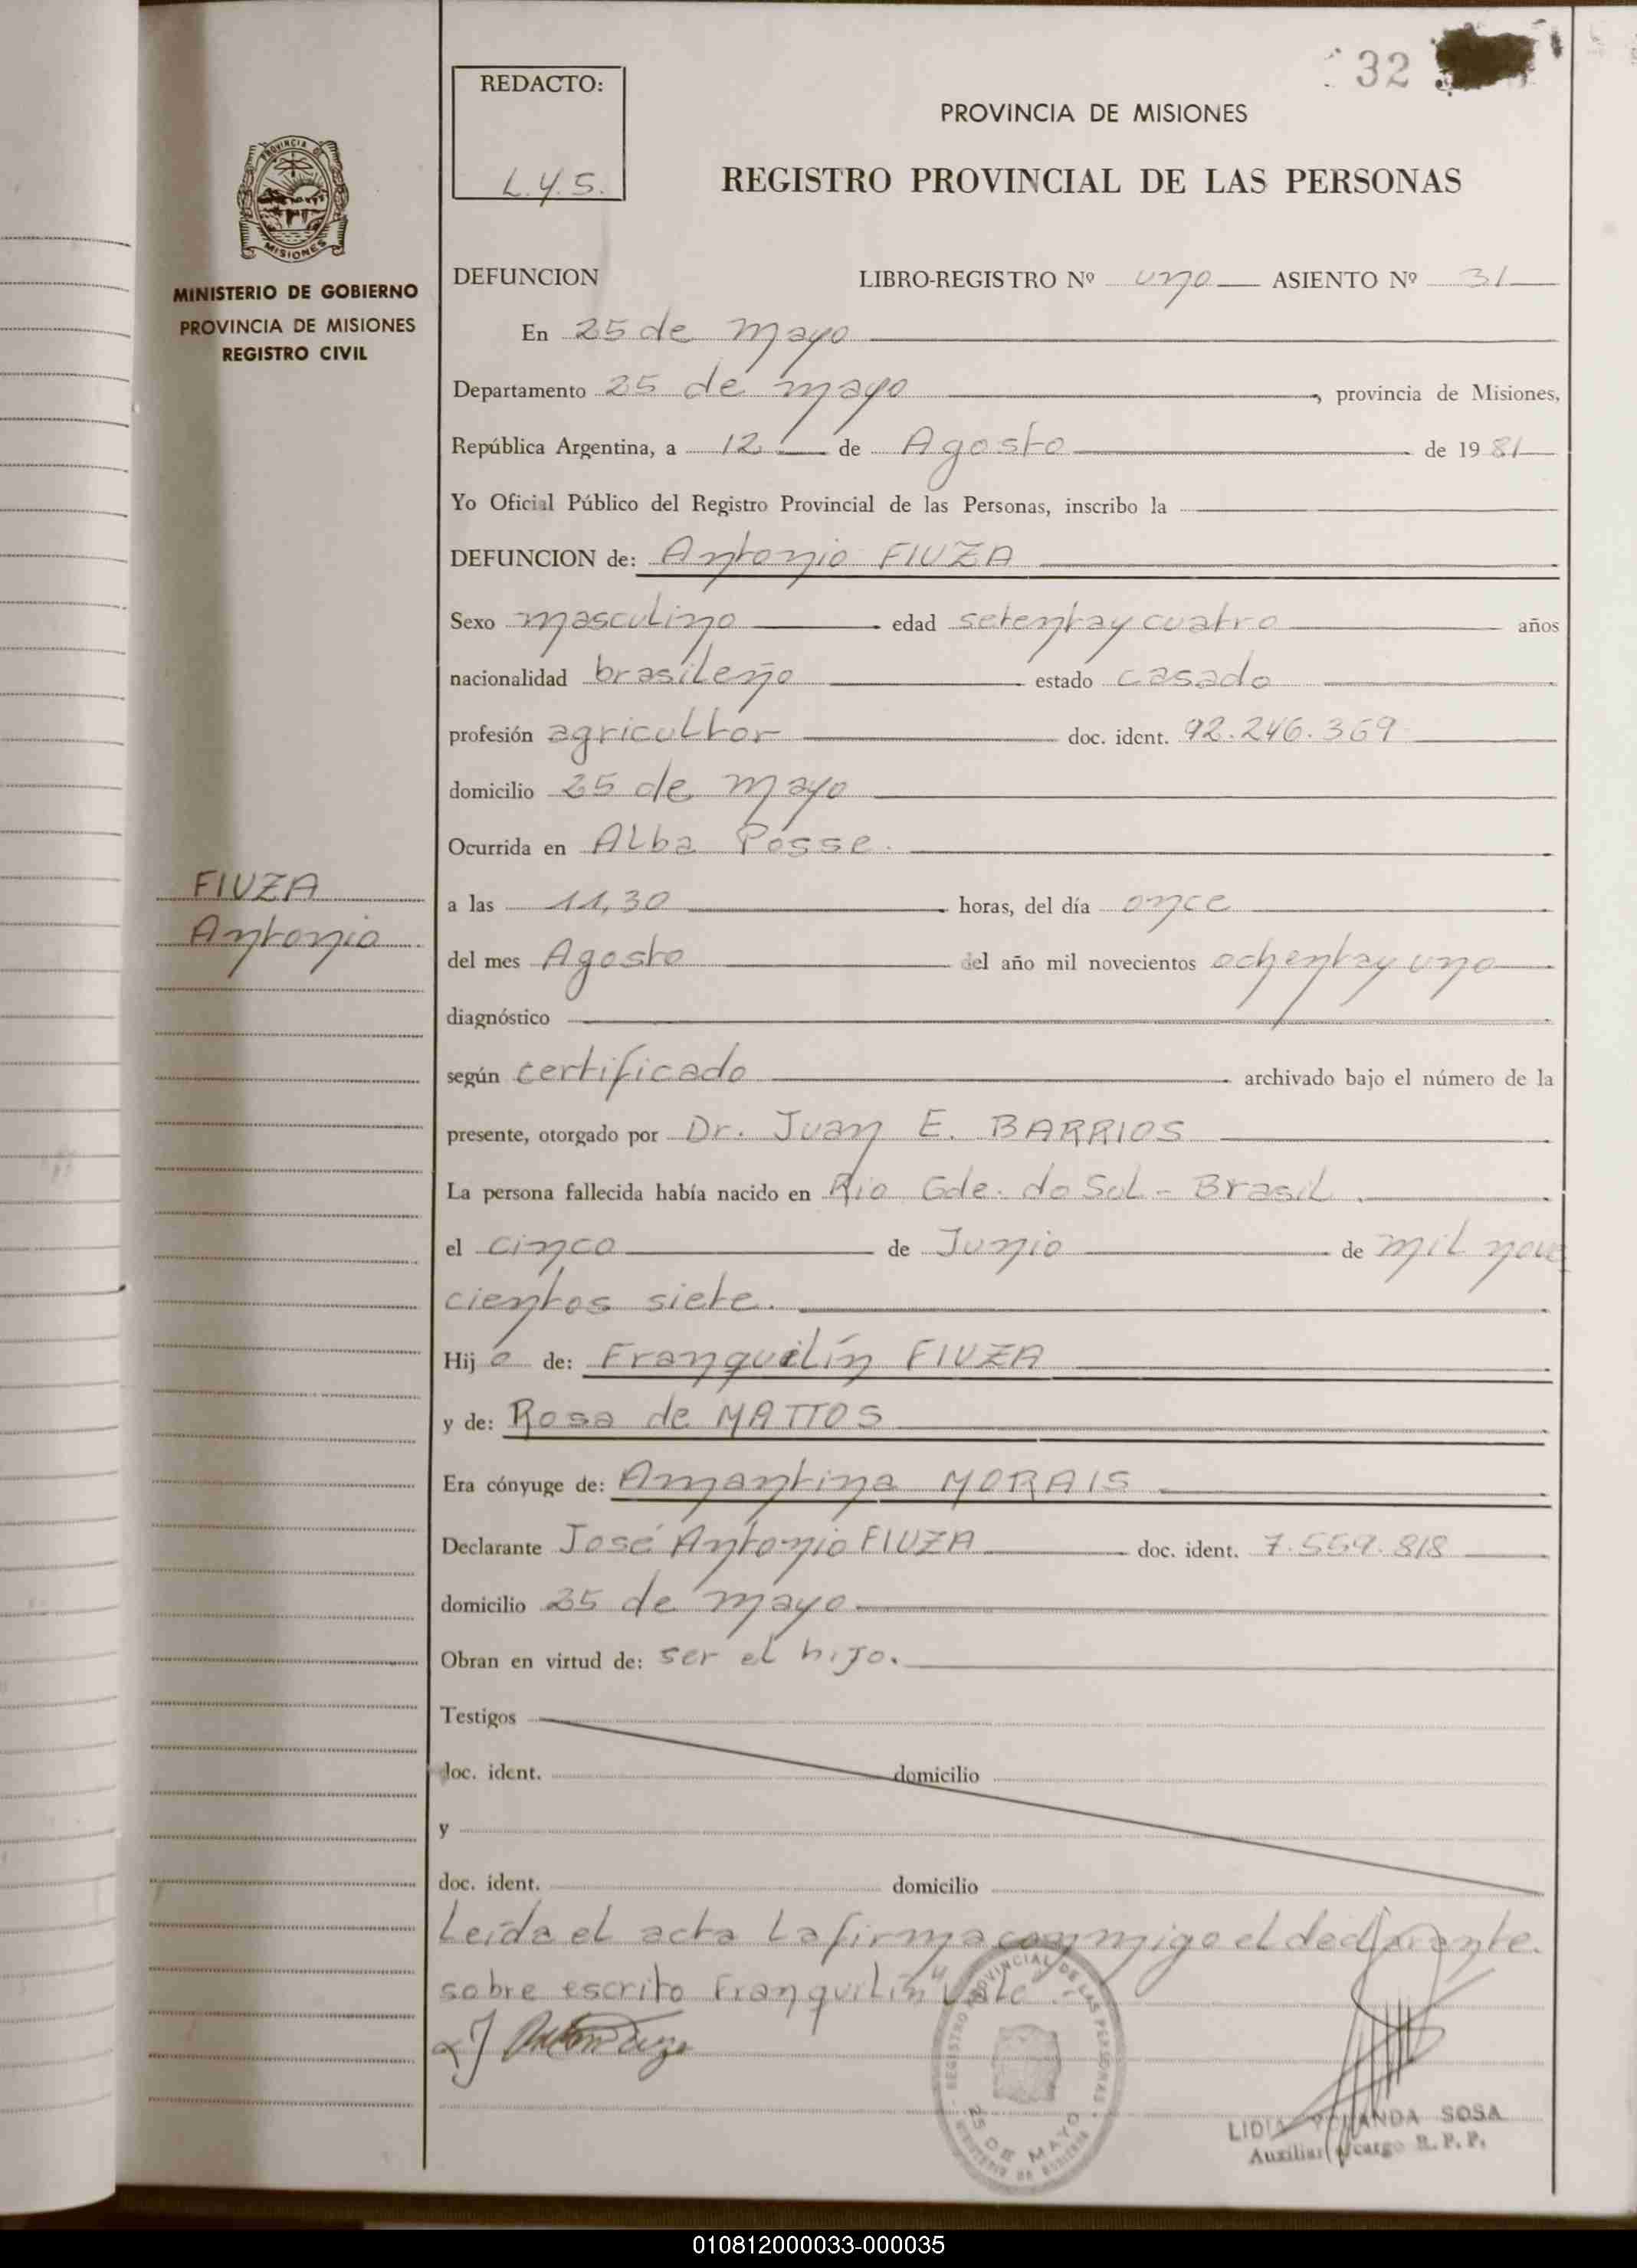 32
REDACTO:
L.Y.S.
PROVINCIA DE MISIONES
REGISTRO PROVINCIAL DE LAS PERSONAS
PROVINCIA DE
MISIONES
MINISTERIO DE GOBIERNO
PROVINCIA DE MISIONES
REGISTRO CIVIL
DEFUNCION LIBRO-REGISTRO Nº uno ASIENTO Nº 31
En 25 de mayo
Departamento 25 de mayo, provincia de Misiones,
República Argentina, a 12 de Agosto de 1981
Yo Oficial Público del Registro Provincial de las Personas, inscribo la
DEFUNCION de: Antonio FIUZA
Sexo masculino edad setenta y cuatro años
nacionalidad brasileño estado casado
profesión agricultor doc. ident. 92.246.369
domicilio 25 de mayo
Ocurrida en Alba Posse.
FIUZA
Antonio
a las 11,30 horas, del día once
del mes Agosto del año mil novecientos ochenta y uno
diagnóstico
según certificado archivado bajo el número de la
presente, otorgado por Dr. Juan E. BARRIOS
La persona fallecida había nacido en Rio Gde. do Sul - Brasil.
el cinco de Junio de mil nove
cientos siete.
Hijo de: Franquilín FIUZA
y de: Rosa de MATTOS
Era cónyuge de: Amantina MORAIS
Declarante José Antonio FIUZA doc. ident. 7.559.818
domicilio 25 de mayo
Obran en virtud de: ser el hijo.
Testigos
doc. ident. domicilio
y
doc. ident. domicilio
Leída el acta la firma conmigo el declarante.
sobre escrito Franquilín" Vale.-
REGISTRO PROVINCIAL DE LAS PERSONAS
25 DE MAYO
MINISTERIO DE GOBIERNO
LIDIA YOLANDA SOSA
Auxiliar a/cargo R. P. P.
010812000033-000035